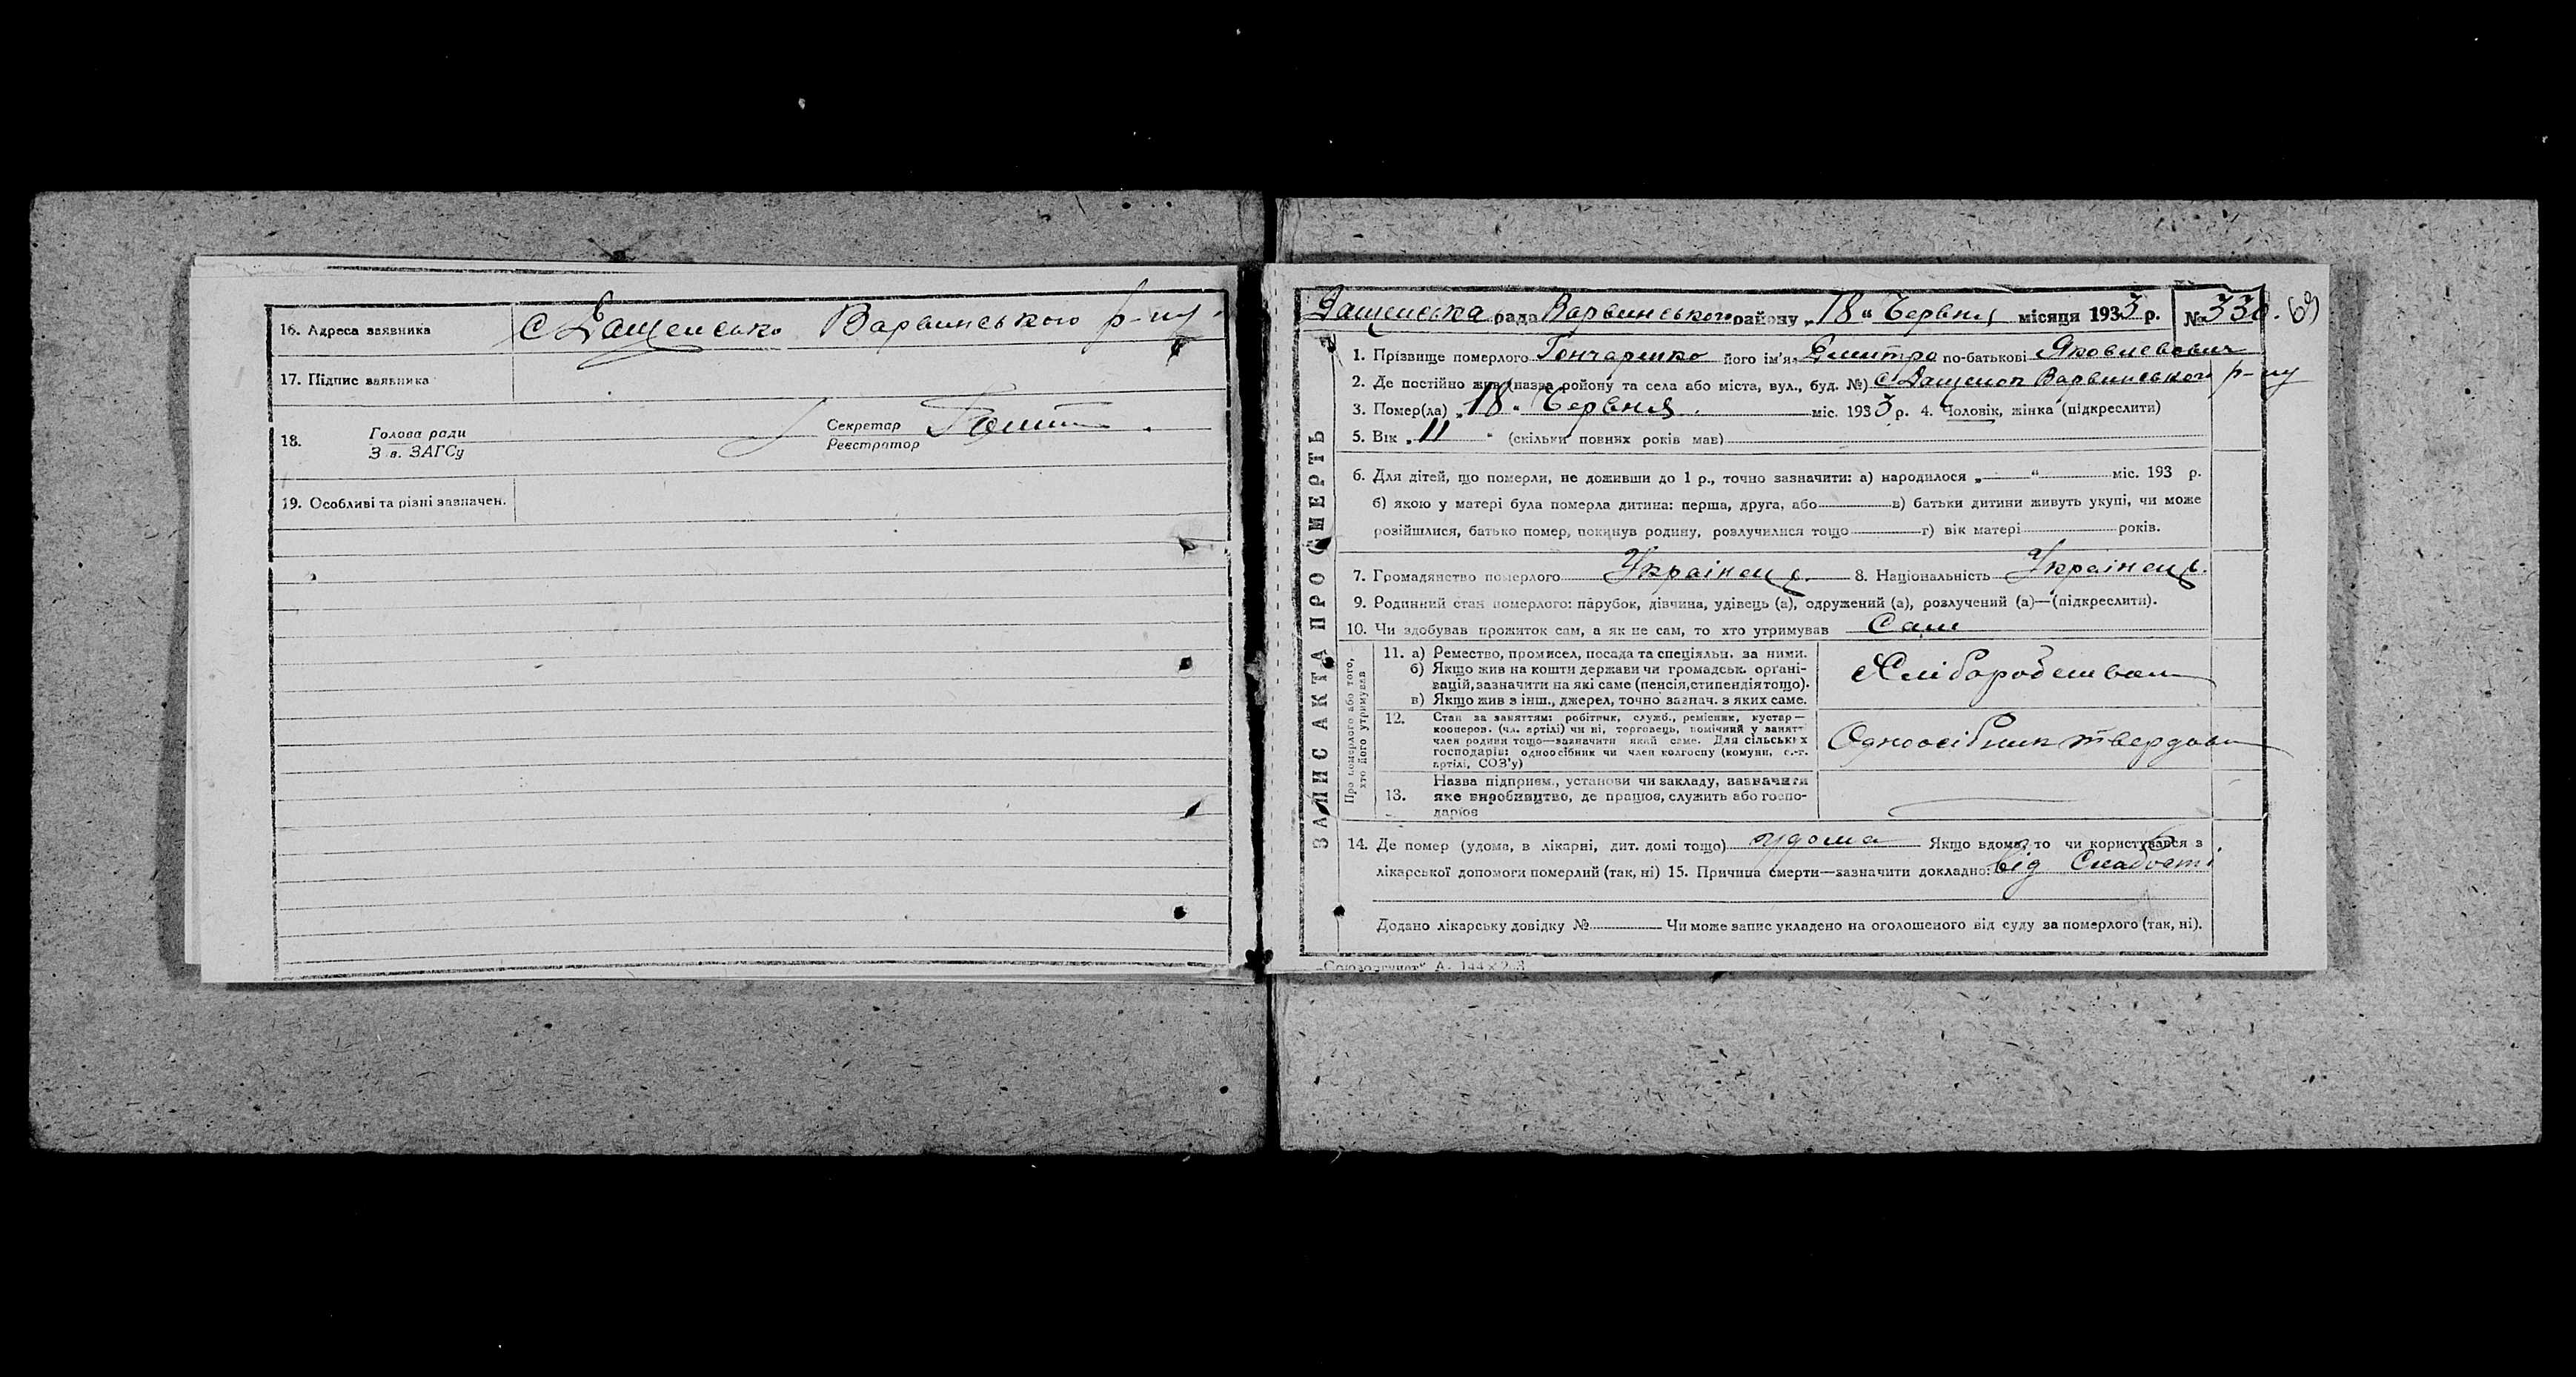 16. Адреса заявника с Дащенсько Варвинського р-ну
17. Підпис заявника
18. Голова ради
З в. ЗАГСу
Секретар
Реєстратор
19. Особливі та різні зазначен.
ЗАПИС АКТА ПРО СМЕРТЬ
Дащенська рада Варвинського району „18“ Червня місяця 1933 р. №
1. Прізвище померлого Гончаренко його ім'я Дмитра по-батькові Яковлевович
2. Де постійно жив (назва району та села або міста, вул., буд. №) с Дащенки Варвинського р-ну
3. Помер(ла) „18“ Червня міс. 1933 р. 4. Чоловік, жінка (підкреслити)
5. Вік „11“ (скільки повних років мав)
6. Для дітей, що померли, не доживши до 1 р., точно зазначити: а) народилося „ “ міс. 193 р.
б) якою у матері була померла дитина: перша, друга, або в) батьки дитини живуть укупі, чи може
розійшлися, батько помер, покинув родину, розлучилися тощо г) вік матері років.
7. Громадянство померлого Українец. 8. Національність Українец.
9. Родинний стан померлого: парубок, дівчина, удівець (а), одружений (а), розлучений (а)—(підкреслити).
10. Чи здобував прожиток сам, а як не сам, то хто утримував Сам
Про померлого або того,
хто його утримував
11. а) Ремество, промисел, посада та спеціяльн. за ними.
б) Якщо жив на кошти держави чи громадськ. органі-
зацій, зазначити на які саме (пенсія, стипендія тощо).
в) Якщо жив з інш., джерел, точно зазнач. з яких саме.
Хліборобством
12. Стан за заняттям: робітник, служб., ремісник, кустар—
кооперов. (чл. артілі) чи ні, торговець, помічний у занятт
член родини тощо—зазначити який саме. Для сільських
господарів: одноосібник чи член колгоспу (комуни, с.-г.
артілі, СОЗ'у)
Одноосібник твердови
13. Назва підприєм., установи чи закладу, зазначити
яке виробництво, де працює, служить або госпо-
дарює
14. Де помер (удома, в лікарні, дит. домі тощо) удома Якщо вдома, то чи користувався з
лікарської допомоги померлий (так, ні) 15. Причина смерти—зазначити докладно: від Слабости
Додано лікарську довідку № Чи може запис укладено на оголошеного від суду за померлого (так, ні).